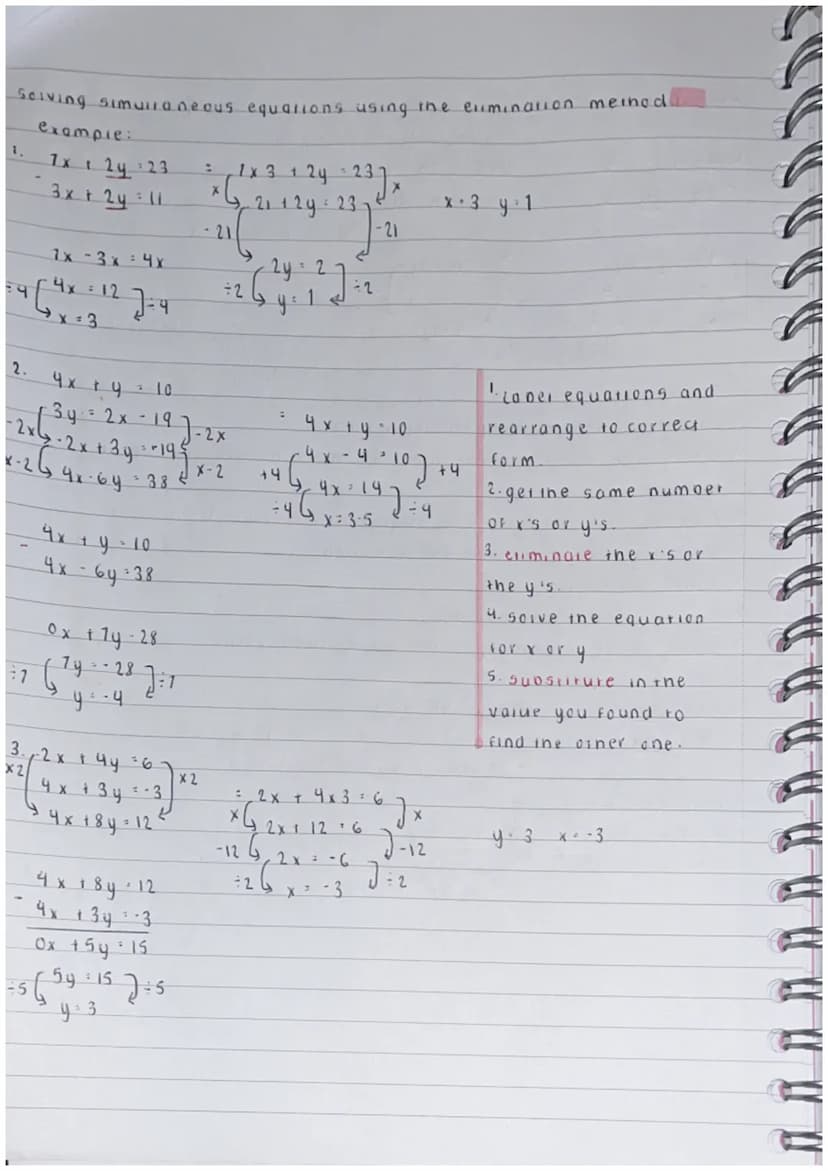 Solving simultaneous equations using the elimination method
example:
1. 7x + 2y = 23
- 3x + 2y = 11
7x - 3x = 4x
÷4 4x = 12 ÷4
x = 3
= 7x3 + 2y = 23
x 21 + 2y = 23 x
-21 -21
÷2 2y = 2 ÷2
y = 1
x = 3 y = 1
2. 4x + y = 10
3y = 2x - 19
-2x -2x + 3y = -19 -2x
x-2 4x - 6y = 38 x-2
4x + y = 10
- 4x - 6y = 38
0x + 7y - 28
÷7 7y = -28 ÷7
y = -4
= 4x + y = 10
4x - 4 = 10
+4 4x = 14 +4
÷4 x = 3.5 ÷4
1. Label equations and
rearrange to correct
form.
2. get the same number
of x's or y's.
3. eliminate the x's or
the y's.
4. solve the equation
for x or y
5. substitute in the
value you found to
find the other one.
3. 2x + 4y = 6
x2 4x + 3y = -3 x2
4x + 8y = 12
4x + 8y = 12
- 4x + 3y = -3
0x + 5y = 15
÷5 5y = 15 ÷5
y = 3
= 2x + 4x3 = 6
x 2x + 12 = 6 x
-12 2x = -6 -12
÷2 x = -3 ÷2
y = 3 x = -3